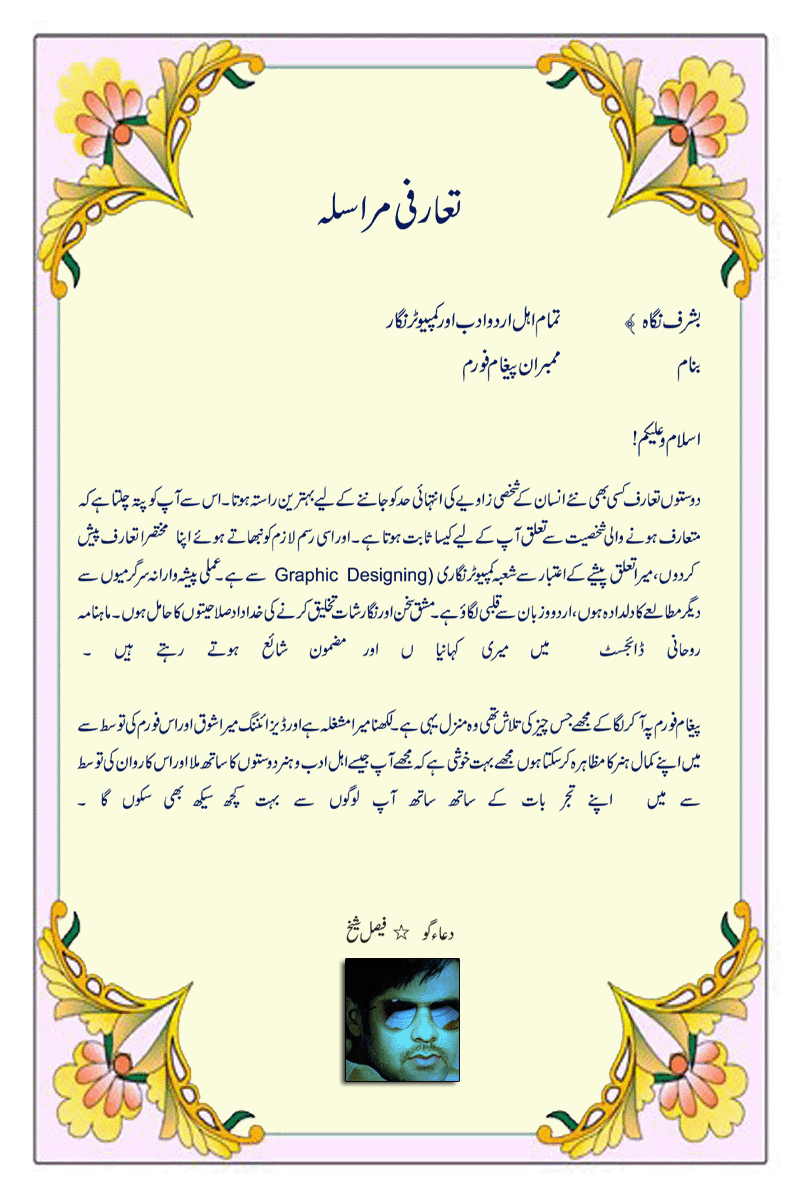 تعارفی مراسلہ
بشرف نگاہ ﴾ تمام اہل اردو ادب اور کمپیوٹر نگار
بنام ممبران پیغام فورم
اسلام و علیکم!
دوستوں تعارف کسی بھی نئے انسان کے شخصی زاویے کی انتہائی حد کو جاننے کے لیے بہترین راستہ ہوتا۔ اس سے آپ کو پتہ چلتا ہے کہ
متعارف ہونے والی شخصیت سے تعلق آپ کے لیے کیسا ثابت ہوتا ہے ۔ اور اسی رسم لازم کو نبھاتے ہوئے اپنا مختصرا تعارف پیش
کردوں، میرا تعلق پیشے کے اعتبار سے شعبہ کمپیوٹر نگاری (Graphic Designing سے ہے۔ عملی پیشہ وارانہ سرگرمیوں سے
دیگر مطالعے کا دلدادہ ہوں، اردو زبان سے قلبی لگاؤ ہے۔ مشق سخن اور نگارشات تخلیق کرنے کی خداداد صلاحیتوں کا حامل ہوں۔ ماہنامہ
روحانی ڈائجسٹ میں میری کہانیا ں اور مضمون شائع ہوتے رہتے ہیں ۔
پیغام فورم پہ آ کر لگا کے مجھے جس چیز کی تلاش تھی وہ منزل یہی ہے۔ لکھنا میرا مشغلہ ہے اور ڈیزائننگ میرا شوق اور اس فورم کی توسط سے
میں اپنے کمال ہنر کا مظاہرہ کرسکتا ہوں مجھے بہت خوشی ہے کہ مجھے آپ جیسے اہل ادب و ہنر دوستوں کا ساتھ ملا اور اس کاروان کی توسط
سے میں اپنے تجر بات کے ساتھ ساتھ آپ لوگوں سے بہت کچھ سیکھ بھی سکوں گا ۔
دعاء گو ☆ فیصل شیخ